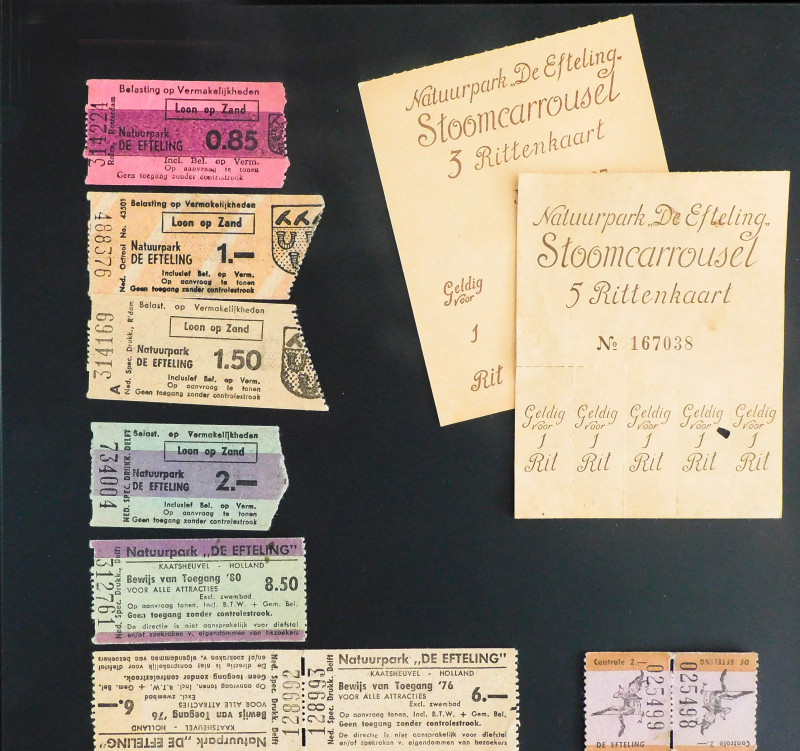 Belasting op Vermakelijkheden
Loon op Zand
Natuurpark
DE EFTELING
0.85
Incl. Bel. op Verm.
Op aanvraag te tonen
Geen toegang zonder contr.strook
314224
Belasting op Vermakelijkheden
Loon op Zand
Natuurpark
DE EFTELING
1.—
Inclusief Bel. op Verm.
Op aanvraag te tonen
Geen toegang zonder controlestrook
488376
Ned. Octrooi No. 43501
Belast. op Vermakelijkheden
Loon op Zand
Natuurpark
DE EFTELING
1.50
Inclusief Bel. op Verm.
Op aanvraag te tonen
Geen toegang zonder controlestrook
A 314169
Ned. Spec. Drukk., R'dam
Belast. op Vermakelijkheden
Loon op Zand
Natuurpark
DE EFTELING
2.—
Inclusief Bel. op Verm.
Op aanvraag te tonen
Geen toegang zonder controlestrook
734004
NED. SPEC. DRUKK. DELFT
Natuurpark „DE EFTELING"
KAATSHEUVEL - HOLLAND
Bewijs van Toegang '80
8.50
VOOR ALLE ATTRACTIES
Excl. zwembad
Op aanvraag tonen, Incl. B.T.W. + Gem. Bel.
Geen toegang zonder controlestrook.
De directie is niet aansprakelijk voor diefstal
en/of zoekraken v. eigendommen van bezoekers
312761
Ned. Spec. Drukk., Delft
DE EFTELING
KAATSHEUVEL - HOLLAND
Bewijs van Toegang '76
6.—
VOOR ALLE ATTRACTIES
Excl. zwembad
Op aanvraag tonen, Incl. B.T.W. + Gem. Bel.
Geen toegang zonder controlestrook.
De directie is niet aansprakelijk voor diefstal
en/of zoekraken v. eigendommen van bezoekers
128992
Ned. Spec. Drukk. Delft
Natuurpark „DE EFTELING"
KAATSHEUVEL - HOLLAND
Bewijs van Toegang '76
6.—
VOOR ALLE ATTRACTIES
Excl. zwembad
Op aanvraag tonen, Incl. B.T.W. + Gem. Bel.
Geen toegang zonder controlestrook.
De directie is niet aansprakelijk voor diefstal
en/of zoekraken v. eigendommen van bezoekers
128993
Ned. Spec. Drukk. Delft
Natuurpark „De Efteling„
Stoomcarrousel
3 Rittenkaart
Geldig
voor
1
Rit
Natuurpark „De Efteling„
Stoomcarrousel
5 Rittenkaart
№ 167038
Geldig Geldig Geldig Geldig Geldig
voor voor voor voor voor
1 1 1 1 1
Rit Rit Rit Rit Rit
Controle 2.—
025499
DE EFTELING
DE EFTELING
025498
Controle